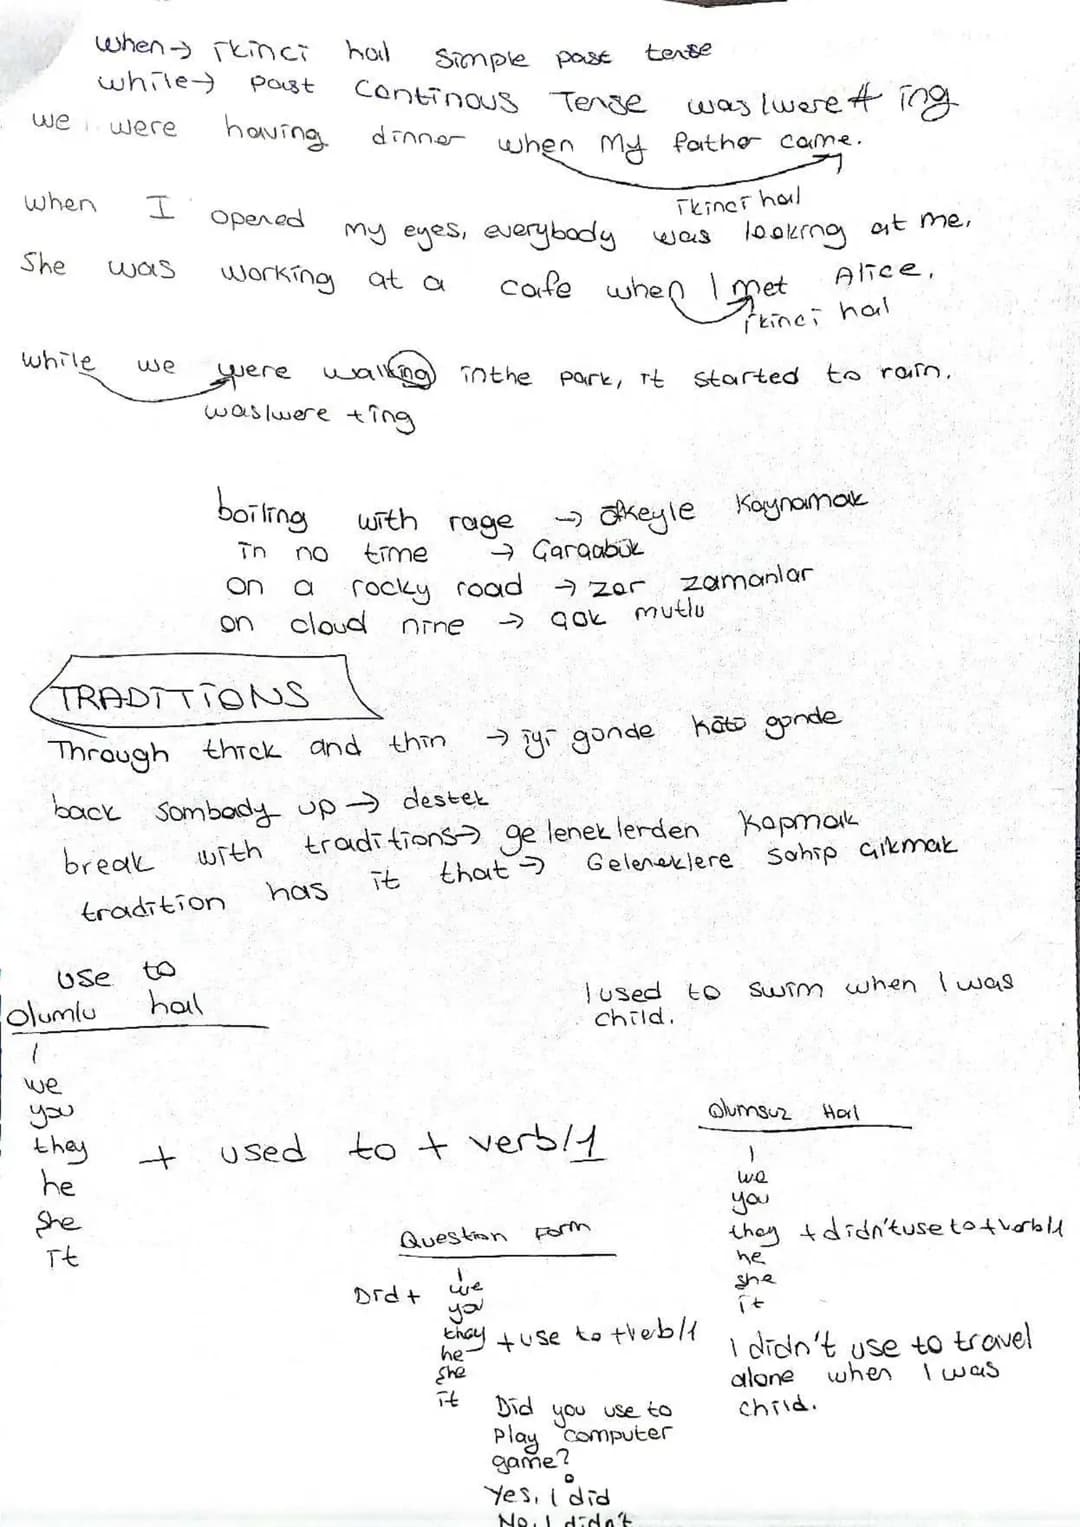 when → ikinci hal simple past tense
while → past continous Tense was/were + ing
we were having dinner when my father came.
ikinci hal
when I opened my eyes, everybody was looking at me.
She was working at a cafe when I met Alice.
ikinci hal
while we were walking in the park, it started to rain.
was/were +ing
boiling with rage → öfkeyle Kaynamak
in no time → Çarçabuk
on a rocky road → zor zamanlar
on cloud nine → çok mutlu
TRADITIONS
Through thick and thin → iyi günde kötü günde
back sombady up → destek
break with traditions → geleneklerden kopmak
tradition has it that → Geleneklere sahip çıkmak
use to
Olumlu hal
I used to swim when I was
child.
I
we
you
they + used to + verb/1
he
she
it
Olumsuz Hal
I
we
you
they + didn't use to + verb/1
he
she
it
I didn't use to travel
alone when I was
child.
Question Form
I
Did + we
you
they + use to + verb/1
he
she
it
Did you use to
Play computer
game?
Yes, I did
No, I didn't